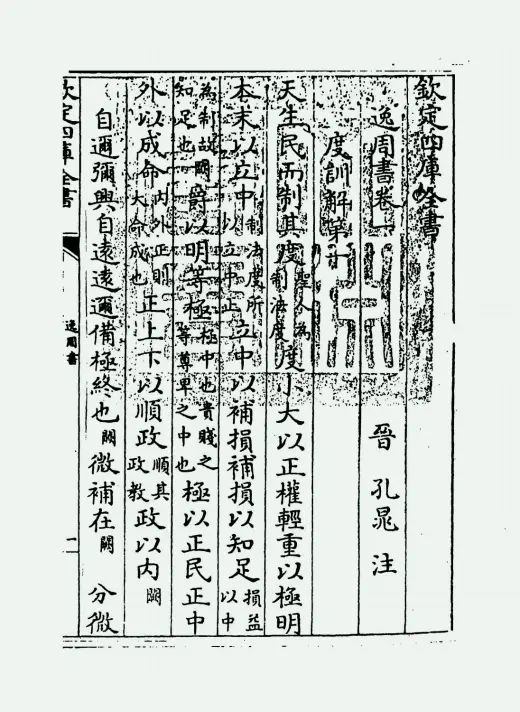 欽定四庫全書
逸周書卷一
晉 孔晁 注
度訓解第一
天生民而制其度聖人為制法度度小大以正權輕重以極明
本末以立中制法度所以立中正立中以補損補損以知足損益以中
為制故知足也闕爵以明等極極中也貴賤之等尊卑之中也極以正民正中
外以成命內外正則大命成也正上下以順政順其政教政以內闕
自邇彌興自遠遠邇備極終也闕微補在闕 分微
欽定四庫全書
逸周書
一